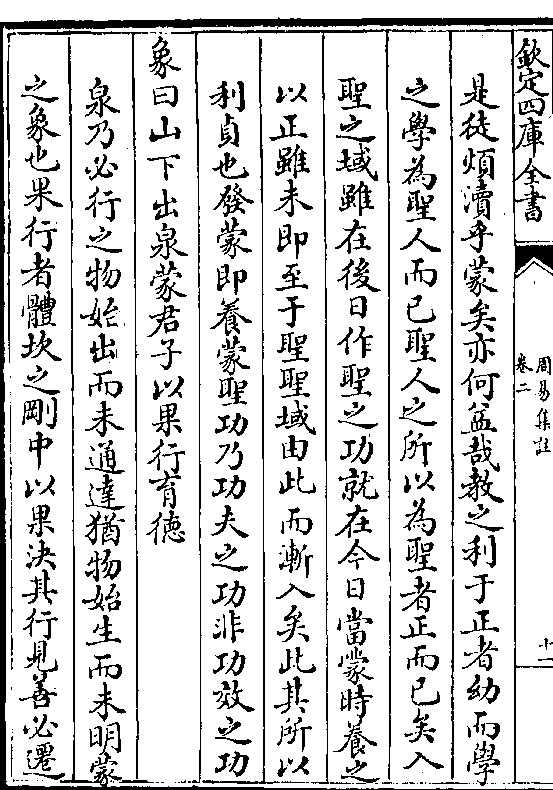 欽定四庫全書
周易集註
卷二
十二
是徒煩瀆乎蒙矣亦何益哉教之利于正者幼而學
之學為聖人而已聖人之所以為聖者正而已矣入
聖之域雖在後日作聖之功就在今日當蒙時養之
以正雖未即至于聖聖域由此而漸入矣此其所以
利貞也發蒙即養蒙聖功乃功夫之功非功效之功
象曰山下出泉蒙君子以果行育德
泉乃必行之物始出而未通達猶物始生而未明蒙
之象也果行者體坎之剛中以果決其行見善必遷